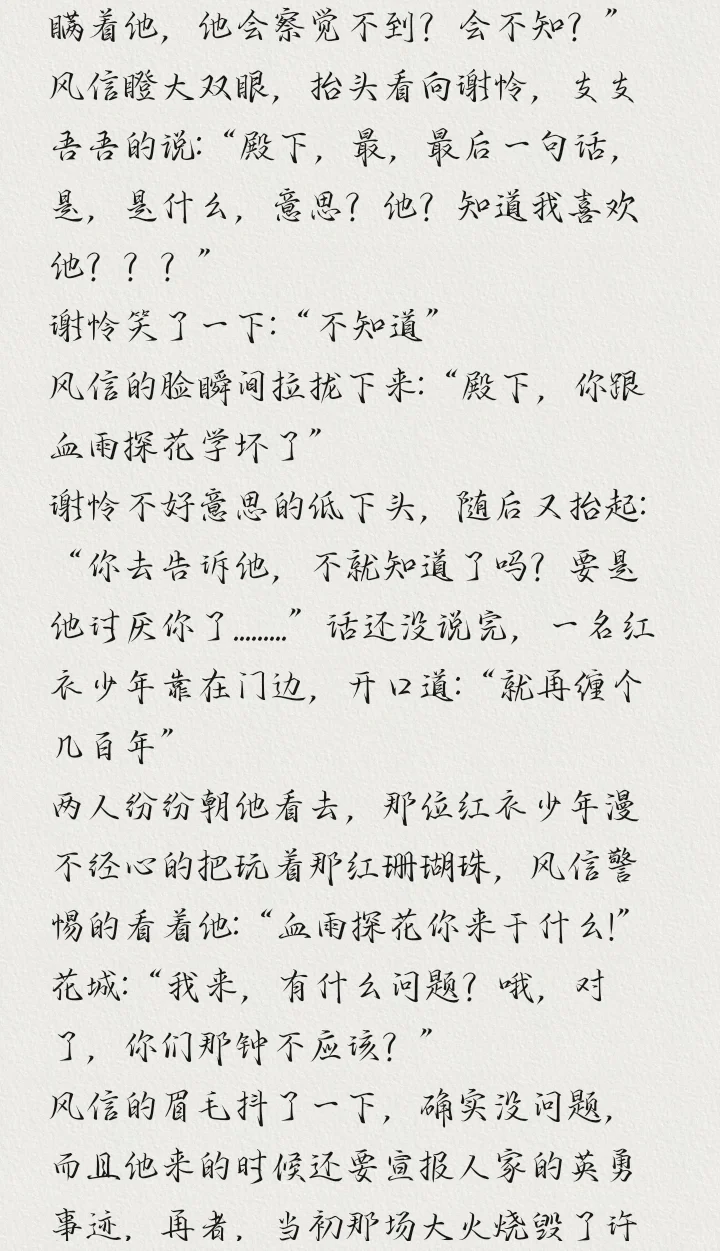 瞒着他，他会察觉不到？会不知？”
风信瞪大双眼，抬头看向谢怜，支支
吾吾的说：“殿下，最，最后一句话，
是，是什么，意思？他？知道我喜欢
他？？？”
谢怜笑了一下：“不知道”
风信的脸瞬间拉拢下来：“殿下，你跟
血雨探花学坏了”
谢怜不好意思的低下头，随后又抬起：
“你去告诉他，不就知道了吗？要是
他讨厌你了………”话还没说完，一名红
衣少年靠在门边，开口道：“就再缠个
几百年”
两人纷纷朝他看去，那位红衣少年漫
不经心的把玩着那红珊瑚珠，风信警
惕的看着他：“血雨探花你来干什么!”
花城：“我来，有什么问题？哦，对
了，你们那钟不应该？”
风信的眉毛抖了一下，确实没问题，
而且他来的时候还要宣报人家的英勇
事迹，再者，当初那场大火烧毁了许